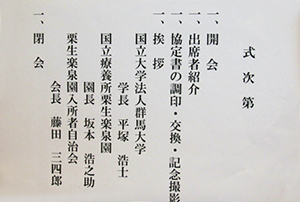 式次第
一、開会
一、出席者紹介
一、協定書の調印・交換・記念撮影
一、挨拶
国立大学法人群馬大学
学長 平塚浩士
国立療養所栗生楽泉園
園長 坂本浩之助
栗生楽泉園入所者自治会
会長 藤田三四郎
一、閉会